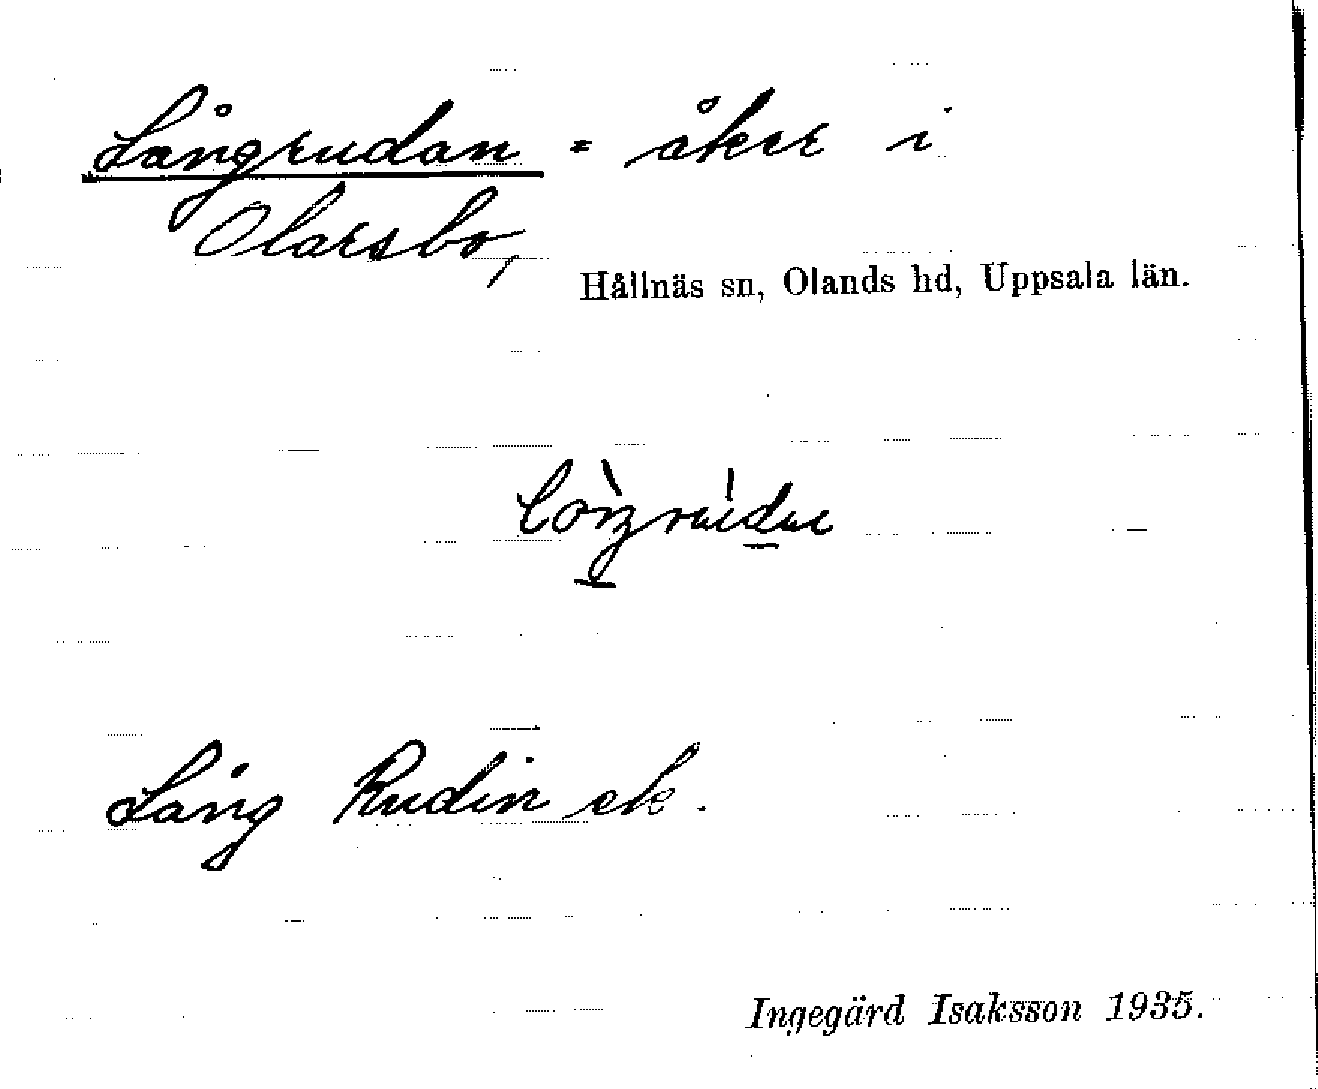 Långrudan = åker i
Olarsbo,
Hållnäs sn, Olands hd, Uppsala län.
Lång Rudin ek.
Ingegärd Isaksson 1935.